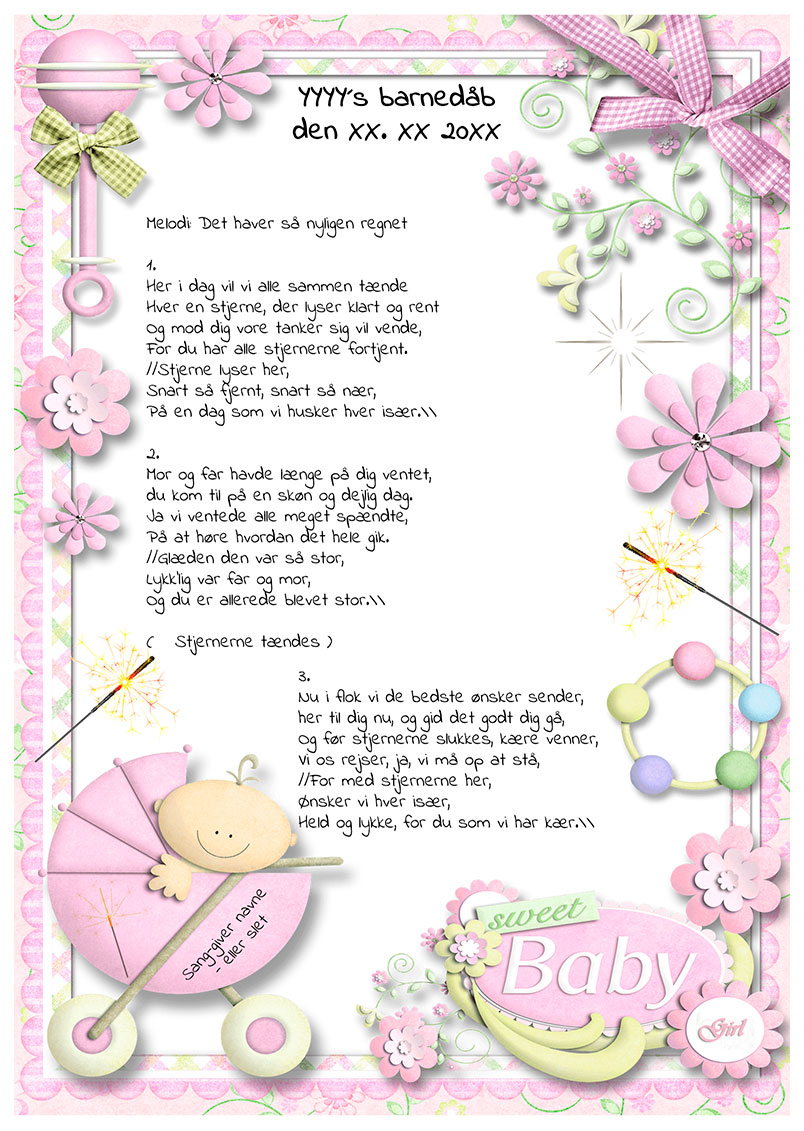 YYYY's barnedåb
den XX. XX 20XX
Melodi: Det haver så nyligen regnet
1.
Her i dag vil vi alle sammen tænde
Hver en stjerne, der lyser klart og rent
Og mod dig vore tanker sig vil vende,
For du har alle stjernerne fortjent.
//Stjerne lyser her,
Snart så fjernt, snart så nær,
På en dag som vi husker hver især.\\
2.
Mor og far havde længe på dig ventet,
du kom til på en skøn og dejlig dag.
Ja vi ventede alle meget spændte,
På at høre hvordan det hele gik.
//Glæden den var så stor,
Lykk'lig var far og mor,
Og du er allerede blevet stor.\\
( Stjernerne tændes )
3.
Nu i flok vi de bedste ønsker sender,
her til dig nu, og gid det godt dig gå,
Og før stjernerne slukkes, kære venner,
Vi os rejser, ja, vi må op at stå,
//For med stjernerne her,
Ønsker vi hver især,
Held og lykke, for du som vi har kær.\\
Sang-giver navne
- eller slet
sweet
Baby
Girl